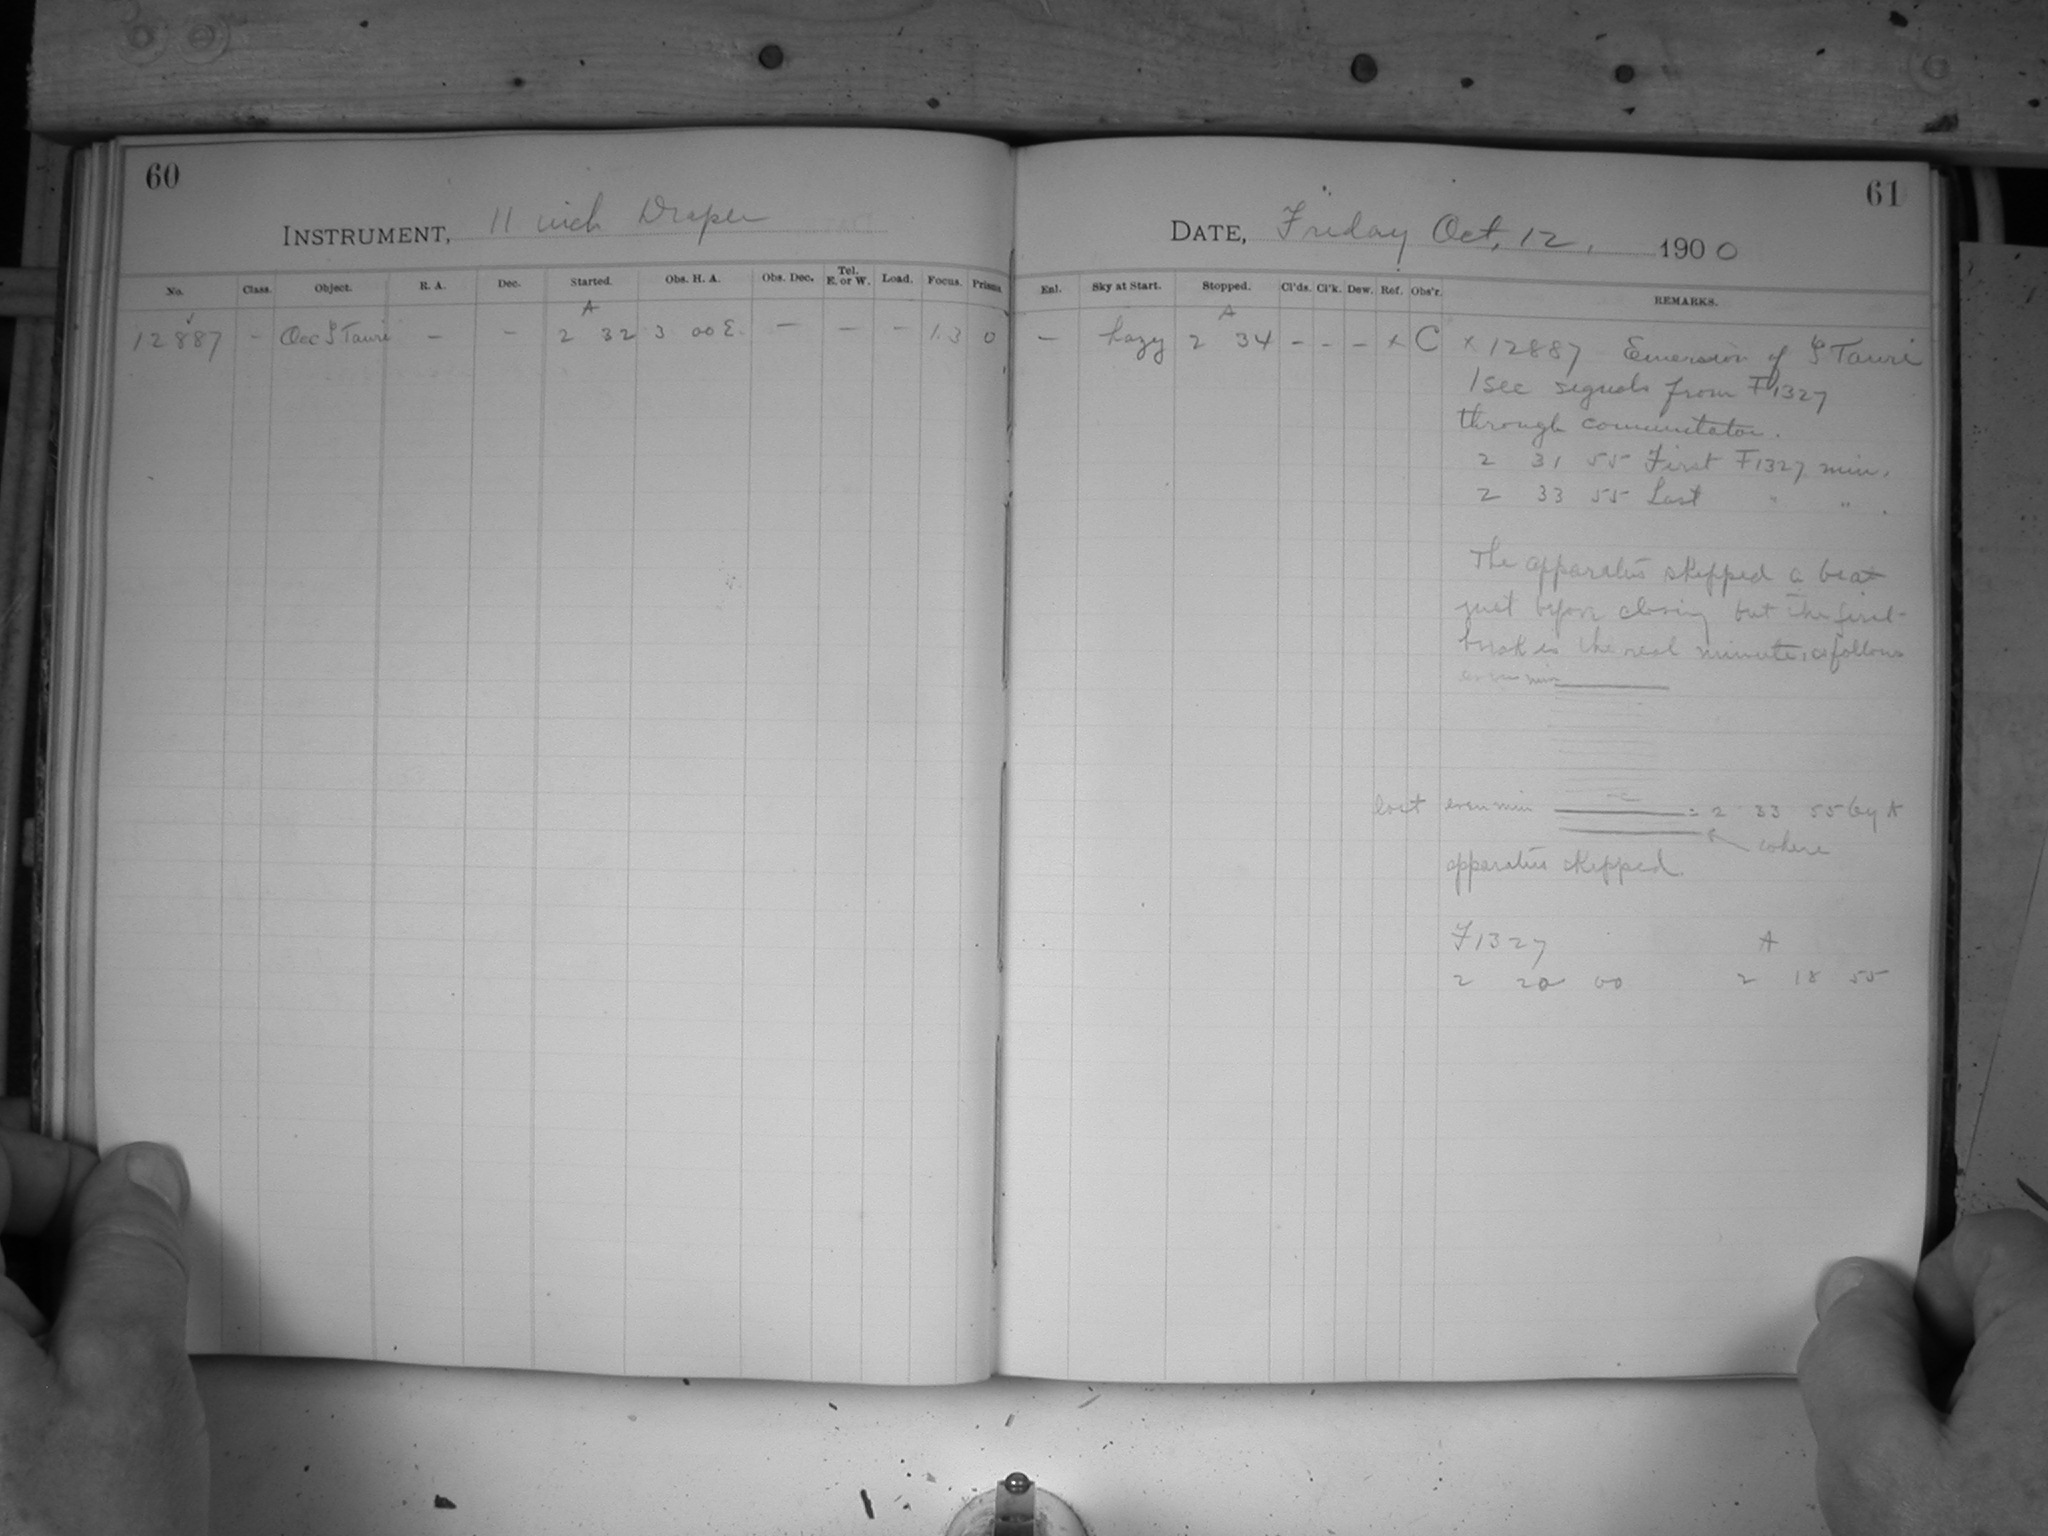 60
INSTRUMENT, 11 inch Draper
No. Class. Object. R. A. Dec. Started. Obs. H. A. Obs. Dec. Tel. E. or W. Load. Focus. Prisms.
A
12887 - Occ ζ Tauri - - 2 32 3 00 E. - - - 1.3 0
61
DATE, Friday Oct, 12, 1900
Enl. Sky at Start. Stopped. Cl'ds. Cl'k. Dew. Ref. Obs'r. REMARKS.
A
- hazy 2 34 - - - x C x 12887 Emersion of ζ Tauri
1 sec signals from F1327
through commutator.
2 31 55 First F1327 min.
2 33 55 Last " " .
The apparatus skipped a beat
just before closing but the first
break is the real minute, as follows
even min
last even min = 2 33 55 by A
where
apparatus skipped.
F1327 A
2 20 00 2 18 55